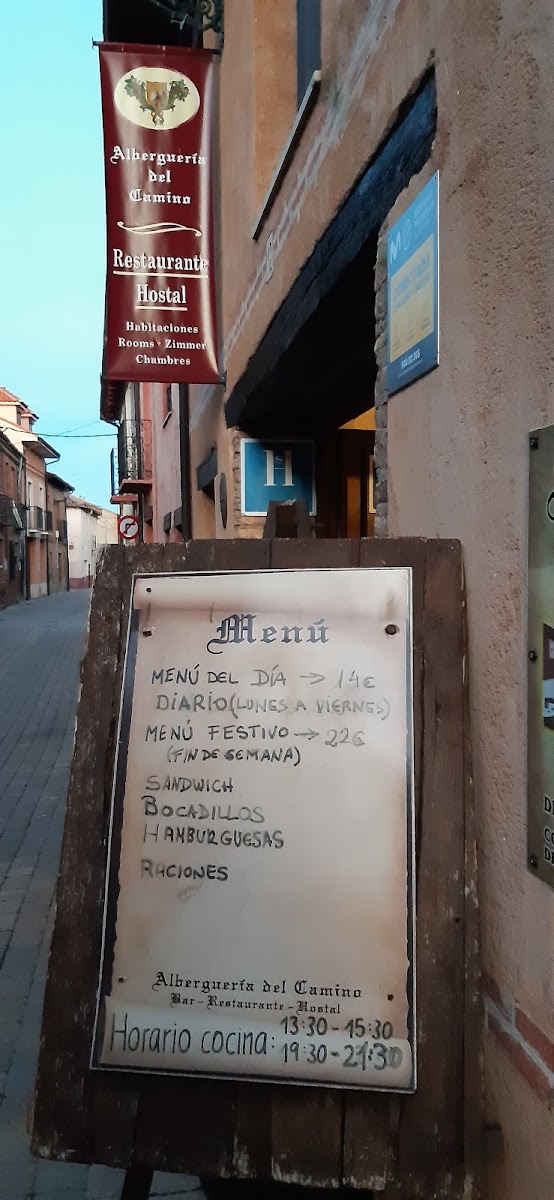 Alberguería
del
Camino
Restaurante
Hostal
Habitaciones
Rooms - Zimmer
Chambres
H
Menú
MENÚ DEL DÍA → 14€
DIARIO (LUNES A VIERNES)
MENÚ FESTIVO → 22€
(FIN DE SEMANA)
SANDWICH
BOCADILLOS
HAMBURGUESAS
RACIONES
Alberguería del Camino
Bar - Restaurante - Hostal
Horario cocina: 13:30 - 15:30
19:30 - 21:30